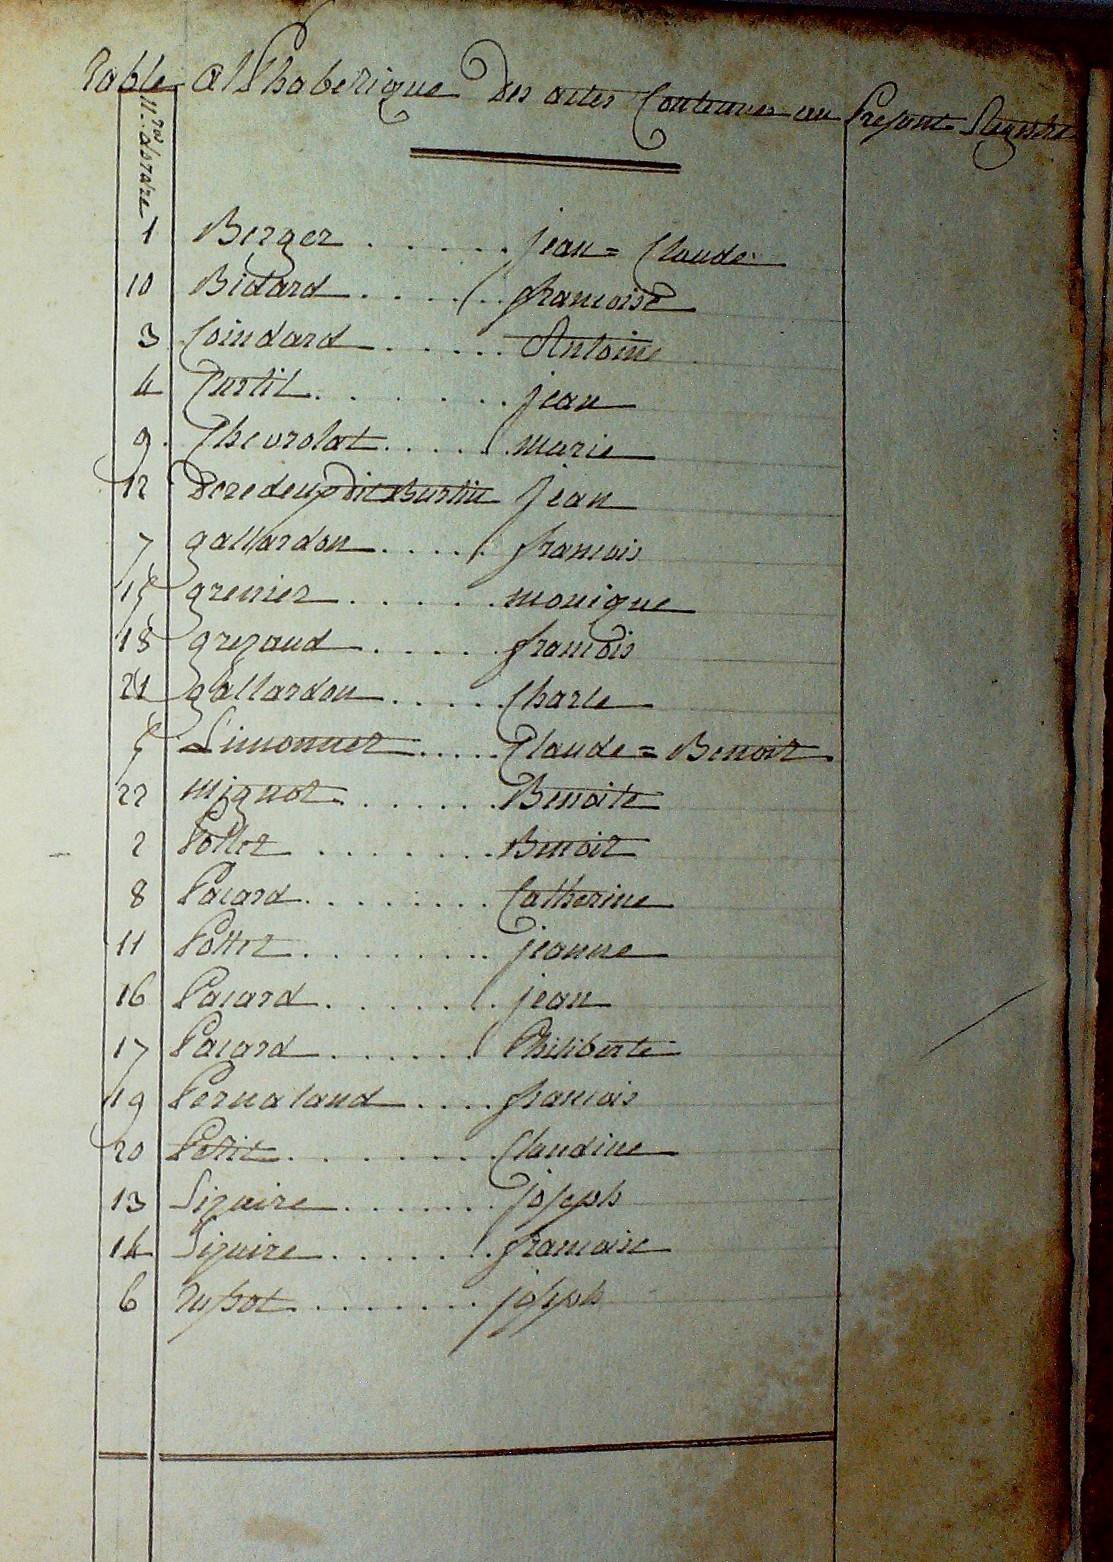 Table alphabetique Des actes Contenues au Present Registre
N.ros d'ordre
1 Berger . . . . . . jean = Claude
10 Bidard . . . . . francoise
3 Coindard . . . . . . Antoine
4 Curtil . . . . . . . jean
9 Chevrolat . . . . . marie
12 jean
7 gallardon . . . . . francois
15 grenier . . . . . . monique
18 grezaud . . . . . . francois
21 gallardon . . . . . Charle
5 Limonnet . . . . . Claude = Benoit
22 mignot . . . . . . . Benoite
2 Pottet . . . . . . . . Benoit
8 Pacard . . . . . . . . Catherine
11 Pottet . . . . . . . . jeanne
16 Pacard . . . . . . . jean
17 Pacard . . . . . . . Philiberte
19 francois
20 Petit . . . . . . . . Claudine
13 joseph
14 francoise
6 joseph